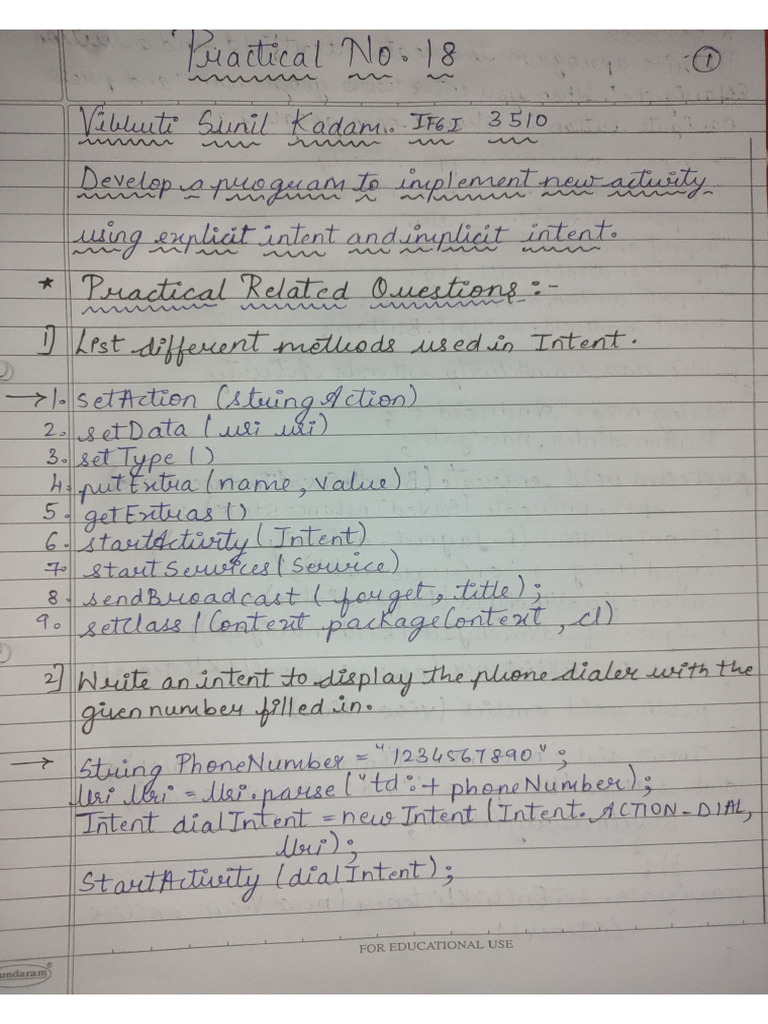 Practical No. 18
1
Vibhuti Sunil Kadam. IF6I 3510
Develop a program to implement new activity
using explicit intent and implicit intent.
* Practical Related Questions :-
1] List different methods used in Intent.
→ 1. setAction (string Action)
2. setData ( uri uri)
3. set Type ( )
4. putExtra (name, value)
5. getExtras ( )
6. startActivity ( Intent)
7. startServices ( Service)
8. sendBroadcast ( forget, title);
9. setclass ( Context packageContext, cl)
2] Write an intent to display the phone dialer with the
given number filled in.
→ String PhoneNumber = "1234567890";
Uri Uri = Uri.parse ("td: + phoneNumber);
Intent dialIntent = new Intent (Intent. ACTION-DIAL,
Uri);
StartActivity (dialIntent);
FOR EDUCATIONAL USE
undaram